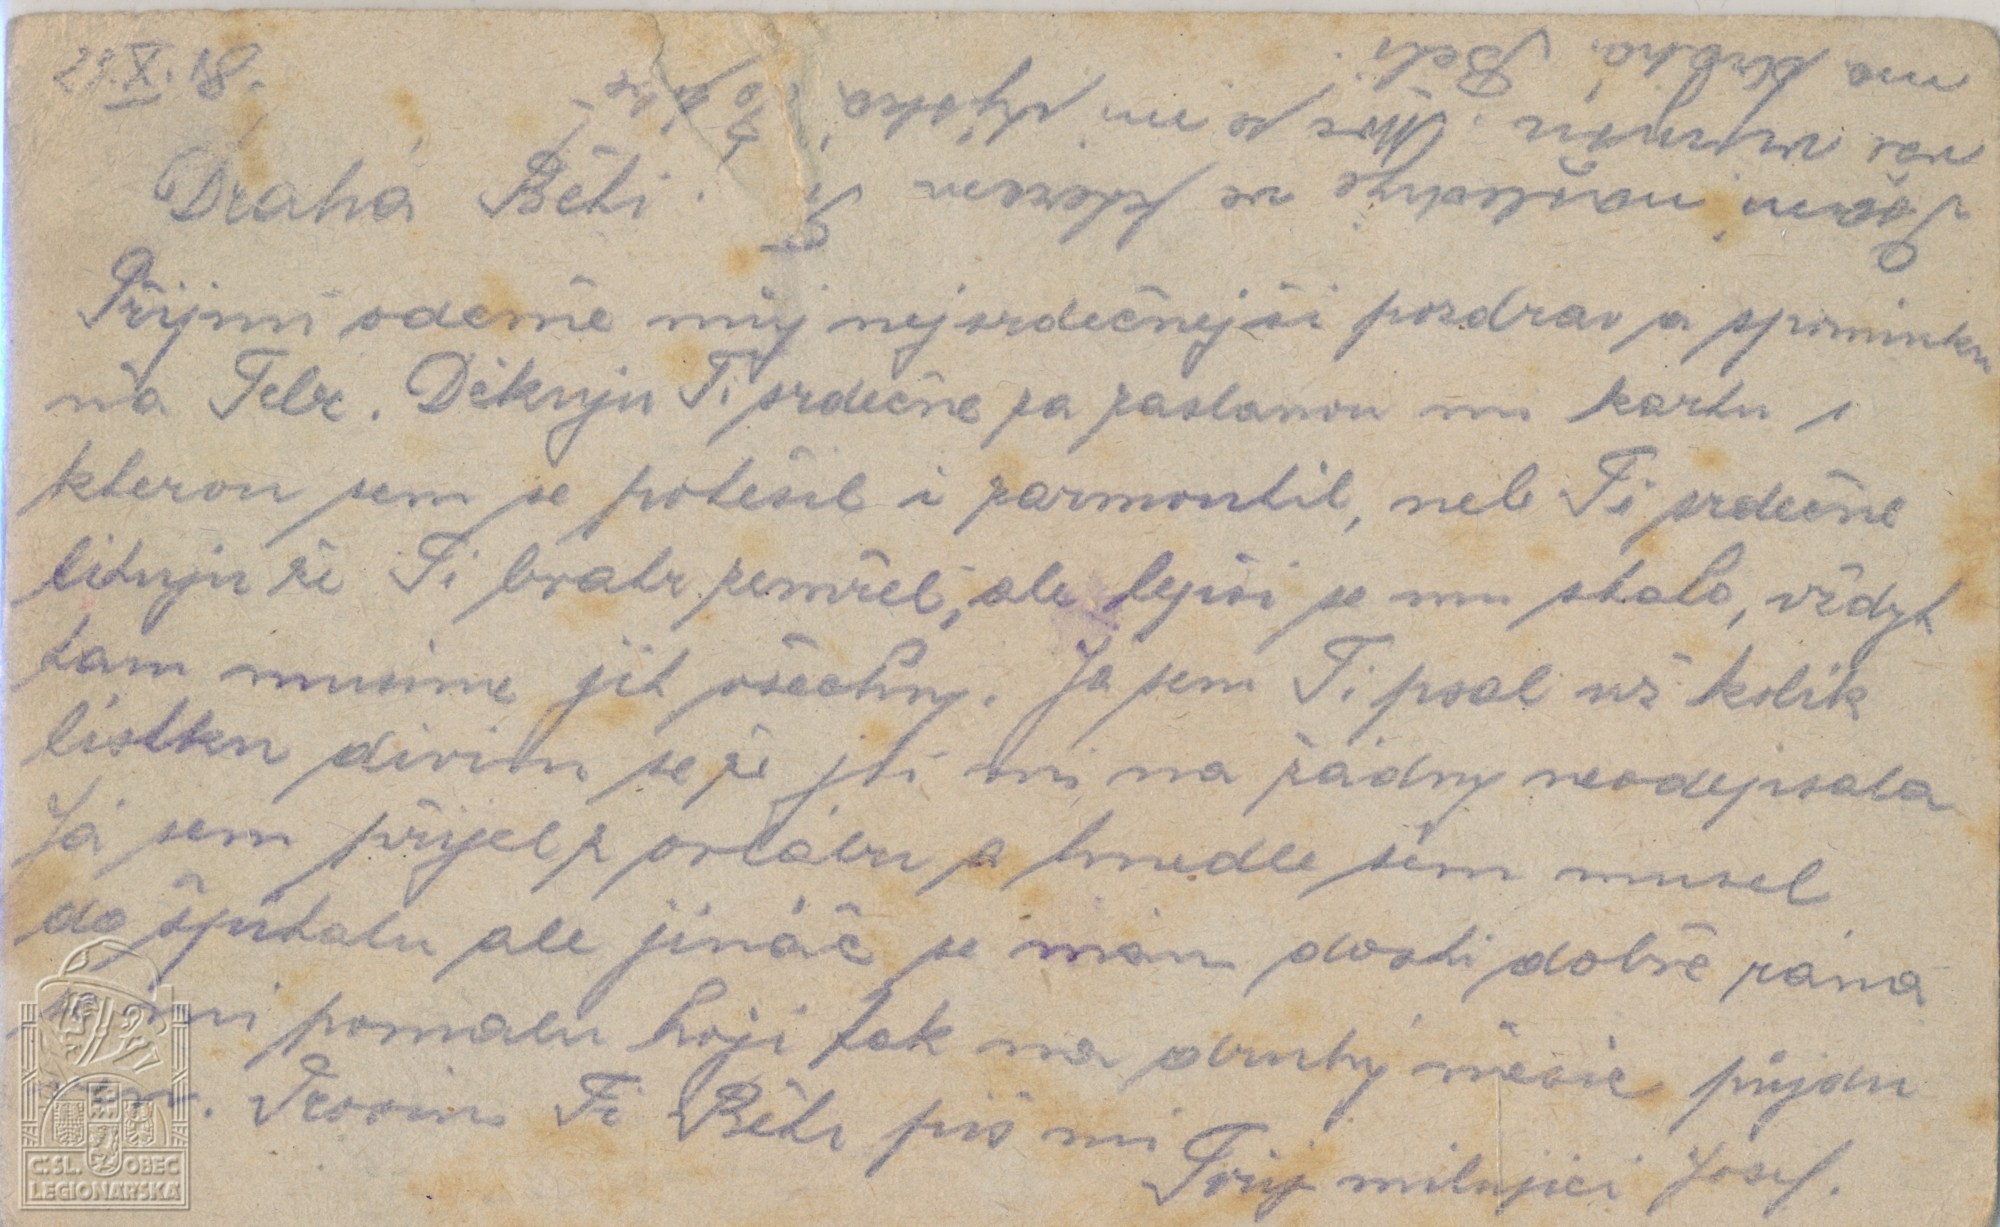 29.X.18.
Drahá Běti.
Přijmi odemě můj nejsrdečnejši pozdrav a spominku
na Tebe. Děkuju Ti srdečne za zaslanou mi kartu s
kterou sem se potěšil i zarmoutil, neb Ti srdečne
lituju že Ti bratr zemřel, ale lepši se mu stalo, vždyt
tam musime jit všechny. Já sem Ti psal už kolik
listku divim se že jsi mi na žádny neodepsala
Já sem přijel z orlábu a hnedle sem musel
do špitalu ale jináč se mám dosti dobře rána
se mi pomalu hoji tak na druhy měsic půjdu
Prosim Ti Běti piš mi
Tvůj milujici Josef.
na
se mi
Běti.
C.SL. OBEC
LEGIONÁŘSKÁ